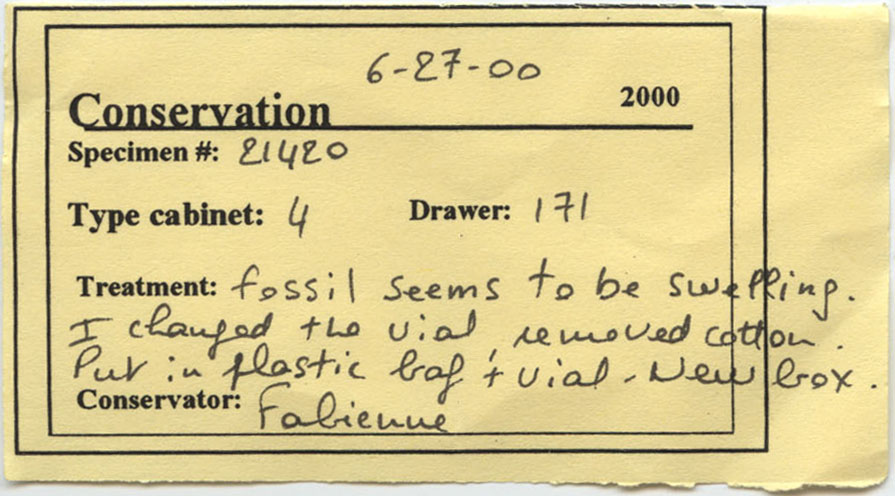 6-27-00
Conservation 2000
Specimen #: 21420
Type cabinet: 4 Drawer: 171
Treatment: fossil seems to be swelling.
I changed the vial, removed cotton.
Put in plastic bag + vial - New box.
Conservator: Fabienne